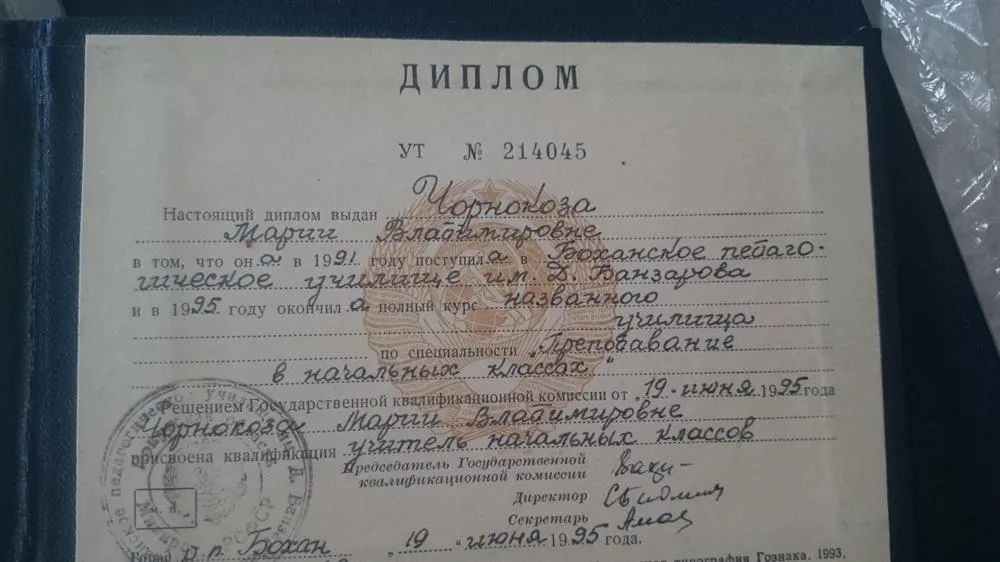 ДИПЛОМ
УТ № 214045
Настоящий диплом выдан Чорнокоза
Марии Владимировне
в том, что он а в 1991 году поступил а в Боханское педаго-
гическое училище им. Д. Банзарова
и в 1995 году окончил а полный курс названного
училища
по специальности „Преподавание
в начальных классах"
Решением Государственной квалификационной комиссии от „19" июня 1995 года
Чорнокоза Марии Владимировне
присвоена квалификация учитель начальных классов
Председатель Государственной
квалификационной комиссии
Директор
Секретарь
М. П.
Город р.п. Бохан „19" июня 1995 года.
типография Гознака. 1993.